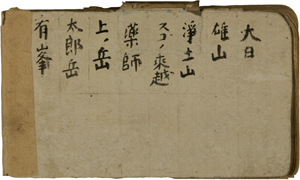 大日
雄山
淨土山
スゴノ乗越
薬師
上ノ岳
太郎岳
有峯